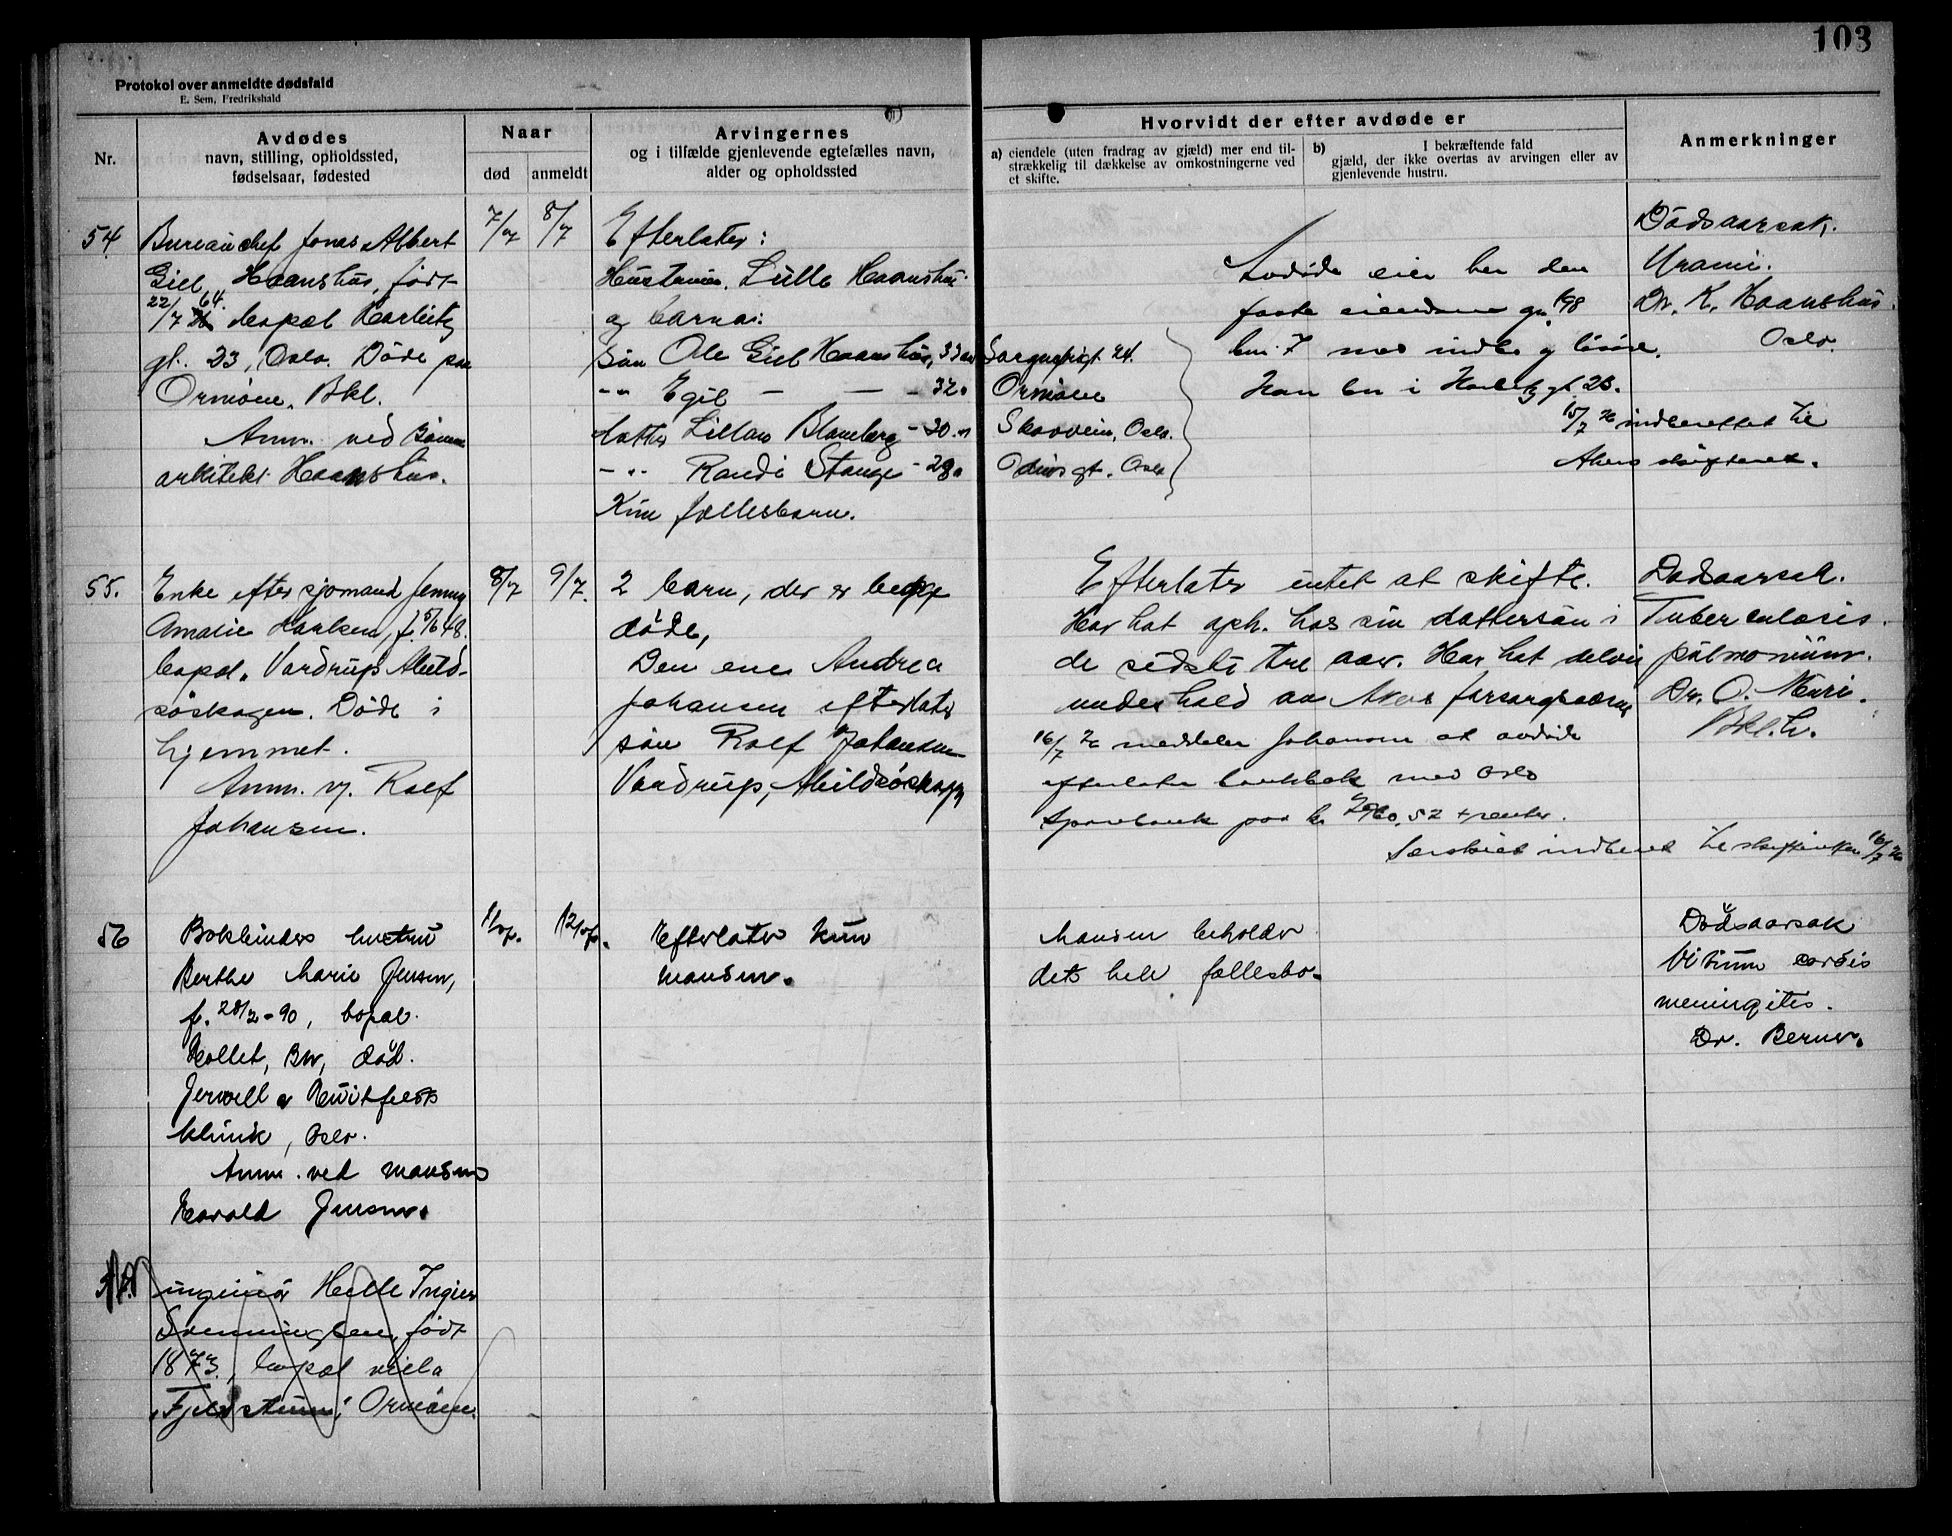 103
Protokol over anmeldte dødsfald
E. Sem, Fredrikshald
Nr.
Avdødes
navn, stilling, opholdssted,
fødselsaar, fødested
Naar
død
anmeldt
Arvingernes
og i tilfælde gjenlevende egtefælles navn,
alder og opholdssted
Hvorvidt der efter avdøde er
a) eiendele (uten fradrag av gjæld) mer end til-
strækkelig til dækkelse av omkostningerne ved
et skifte.
b) I bekræftende fald
gjæld, der ikke overtas av arvingen eller av
gjenlevende hustru.
Anmerkninger
54
Bureauchef Jonas Albert
Giel Haanshus, født
22/7 64. bopæl
gt. 23, Oslo. Døde paa
Ormøen, Bkl.
Anm. ved sønnen
arkitekt Haanshus.
7/7
8/7
Efterlater:
Hustruen, Lulle Haanshus
og barna:
søn Ole Giel Haanshus, 33 aar
-"- Egil — — 32 "
datter Lillan Blomberg - 30 "
-"- Randi Stange - 28 "
Kun fællesbarn.
24.
Ormøen
Skovveien, Oslo.
Odins gt. Oslo
Avdøde eier her den
faste eiendom gn. 198
bn. 7 med indbo og løsøre.
Han bor i gt 23.
15/7 26 indberettet til
Akers skifteret.
Dødsaarsak.
Urami.
Dr. K. Haanshus.
Oslo.
55.
Enke efter sjømand Jenny
Amalie Hansen, f. 5/6 48.
bopæl. Vardrup, Abild-
søskogen. Døde i
hjemmet.
Anm. v. Rolf
Johansen.
8/7
9/7.
2 barn, der er begge
døde,
Den ene Andrea
Johansen efterlater
søn Rolf Johansen
Vardrup, Abildsøskogen
Efterlater intet at skifte.
Har hat oph. hos sin dattersøn i
de sidste tre aar. Har hat delvis
underhold av Akers forsorgsvæsen
16/7 26 meddeler Johansen at avdøde
efterlater bankbok med Oslo
Sparebank paa kr 52 + renter.
Særskilt indberet til skifteretten 16/7 26
Dødsaarsak.
Tuberculosis
pulmonum.
Dr. O.
Bkl.h.
56
Bokbinders hustru
Berthe Marie Jensen,
f. 28/2 - 90, bopæl.
Kollet, Br, død.
Jervell & Kvitfeldts
klinik, Oslo.
Anm. ved mannen
Harald Jensen.
11/7.
12/7.
Efterlater kun
mannen.
Mannen beholder
det hele fællesbo.
Dødsaarsak
Vitium cordis
meningitis.
Dr. Berner.
ingeniør Helle Ingier
Svenningsen, født
1873, bopæl villa
Ormøen.